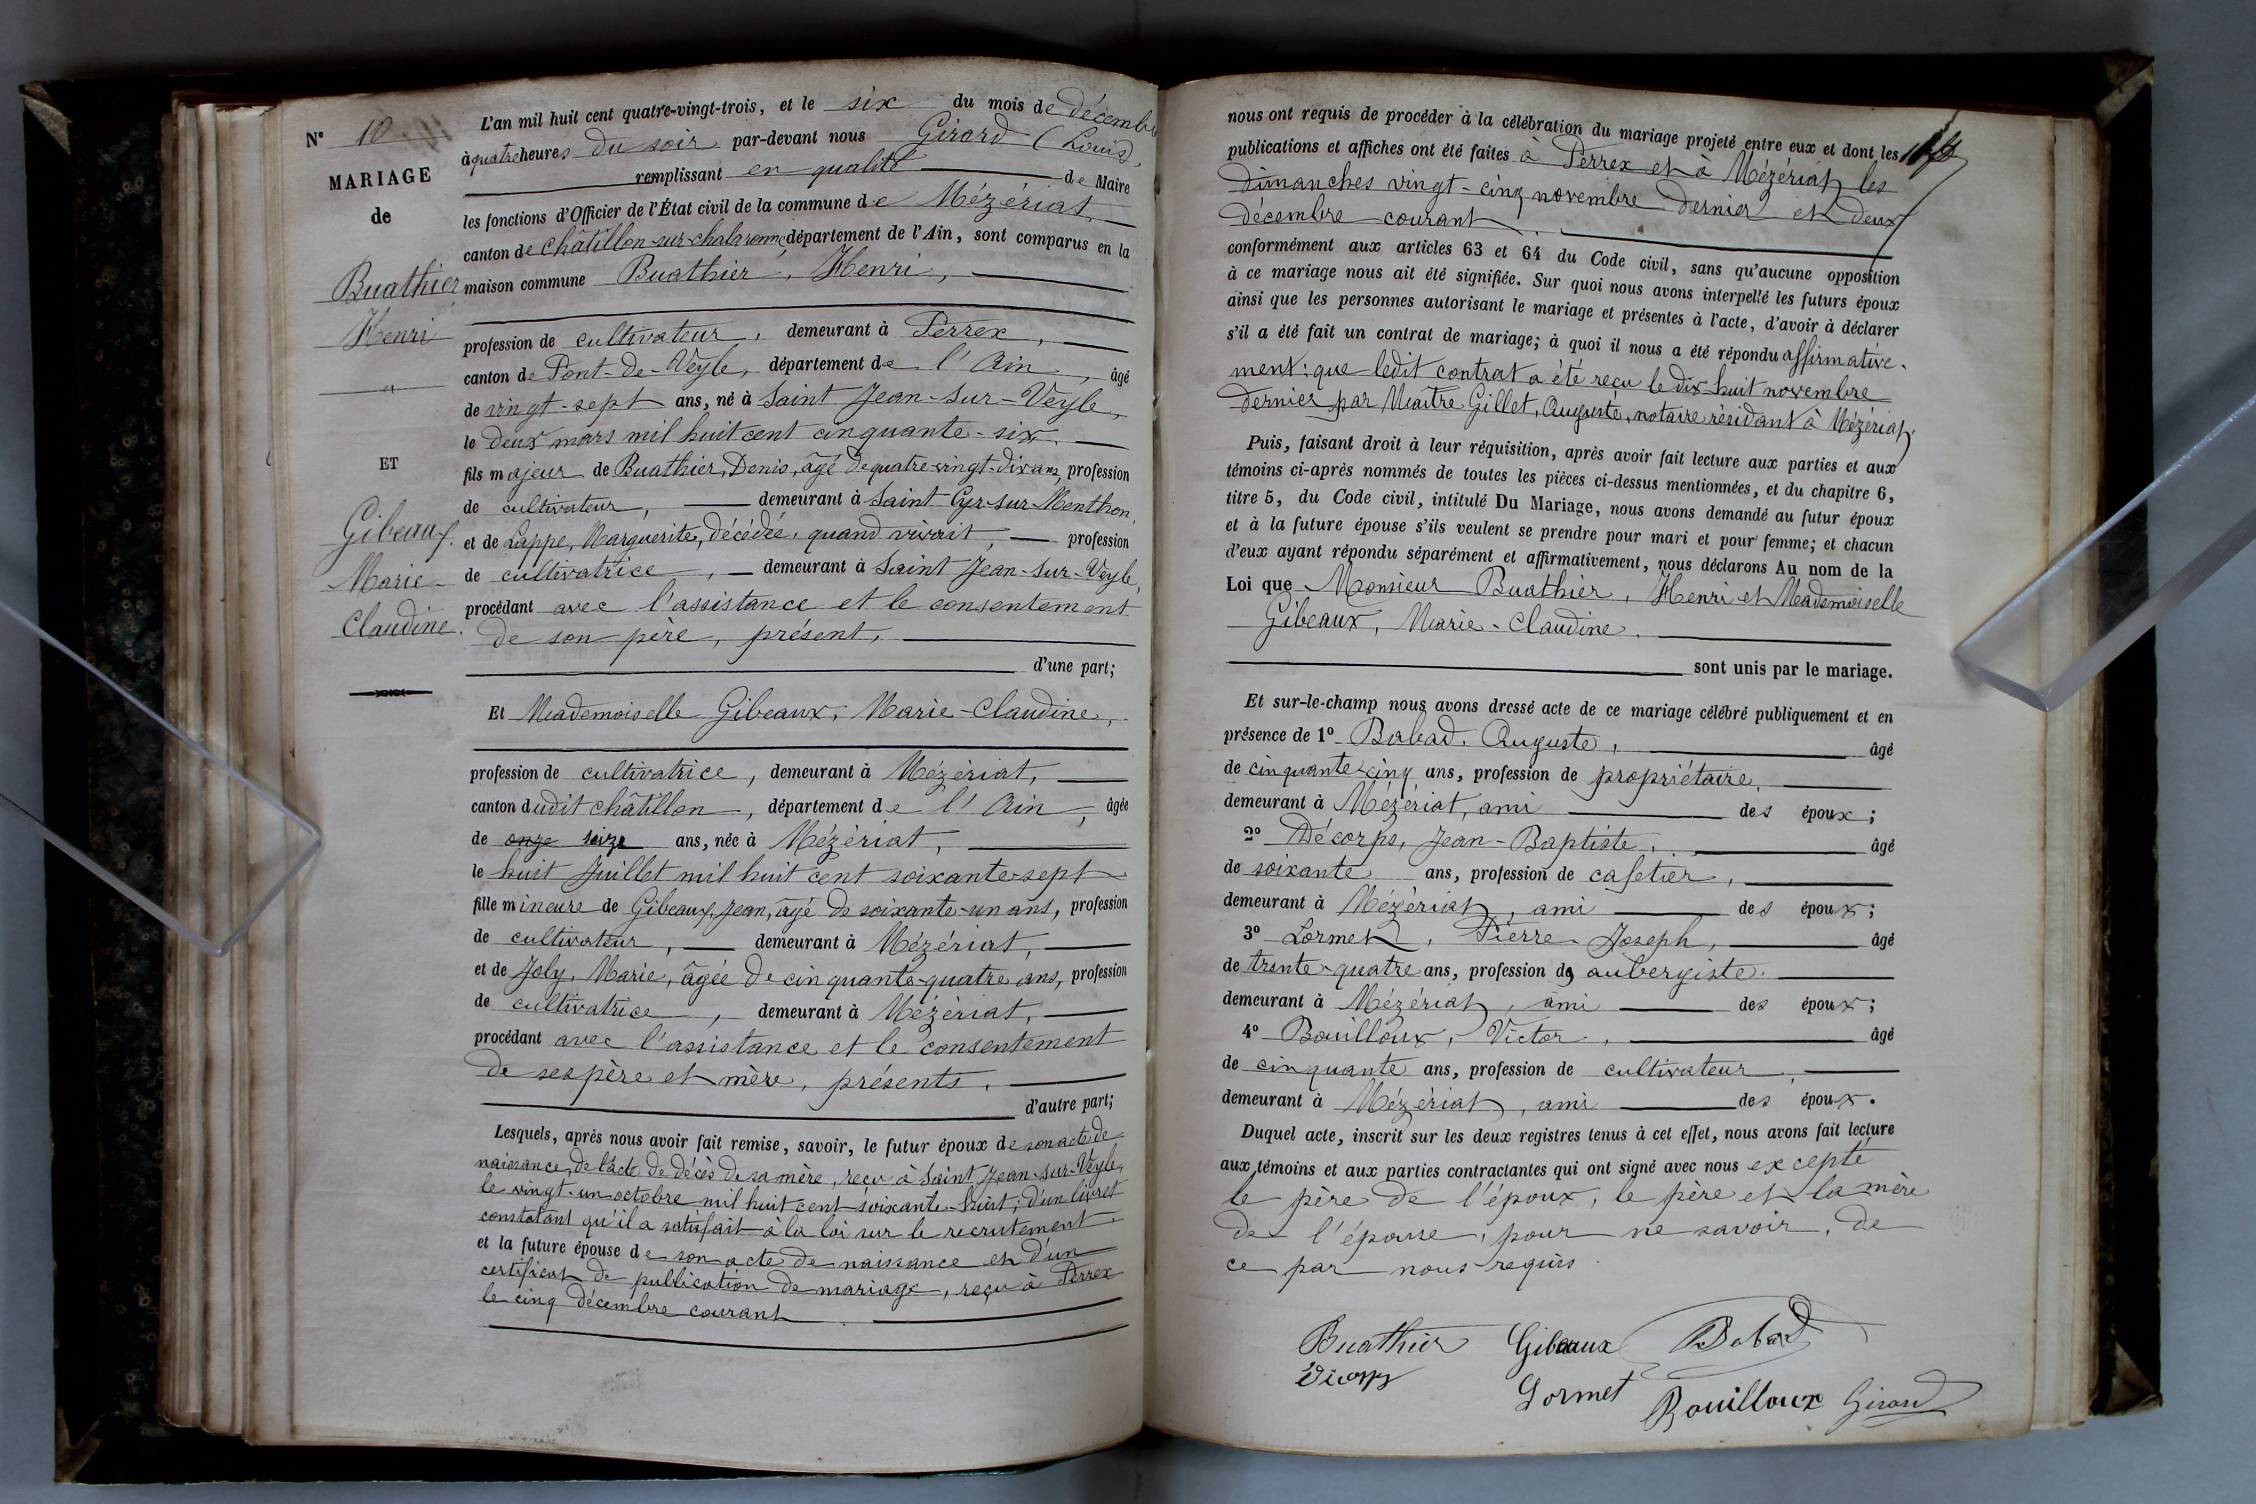 N° 10
MARIAGE
de
Buathier
Henri
"
ET
Gibeaux
Marie-
Claudine.
L'an mil huit cent quatre-vingt-trois, et le six du mois de décembre
à quatre heures du soir par-devant nous Girard (Louis),
remplissant en qualité de Maire
les fonctions d'Officier de l'État civil de la commune de Mézériat,
canton de Châtillon-sur-chalaronne, département de l'Ain, sont comparus en la
maison commune Buathier, Henri,
profession de cultivateur, demeurant à Perrex,
canton de Pont-de-Veyle, département de l'Ain, âgé
de vingt-sept ans, né à Saint Jean-sur-Veyle,
le deux mars mil huit cent cinquante-six.
fils majeur de Buathier, Denis, âgé de quatre-vingt-dix ans, profession
de cultivateur, demeurant à Saint Cyr-sur-Menthon,
et de Lappe, Marguerite, décédée, quand vivait, profession
de cultivatrice, demeurant à Saint Jean-sur-Veyle,
procédant avec l'assistance et le consentement
de son père, présent,
d'une part;
Et Mademoiselle Gibeaux, Marie-Claudine,
profession de cultivatrice, demeurant à Mézériat,
canton dudit châtillon, département de l'Ain, âgée
de onze seize ans, née à Mézériat,
le huit Juillet mil huit cent soixante-sept
fille mineure de Gibeaux, Jean, âgé de soixante-un ans, profession
de cultivateur, demeurant à Mézériat,
et de Joly, Marie, âgée de cinquante-quatre ans, profession
de cultivatrice, demeurant à Mézériat,
procédant avec l'assistance et le consentement
de ses père et mère, présents.
d'autre part;
Lesquels, après nous avoir fait remise, savoir, le futur époux de son acte de
naissance, de l'acte de décès de sa mère, reçu à Saint Jean-sur-Veyle,
le vingt-un octobre mil huit cent soixante-huit; d'un livret
constatant qu'il a satisfait à la loi sur le recrutement.
et la future épouse de son acte de naissance et d'un
certificat de publication de mariage, reçu à Perrex
le cinq décembre courant
nous ont requis de procéder à la célébration du mariage projeté entre eux et dont les
publications et affiches ont été faites à Perrex et à Mézériat les
dimanches vingt-cinq novembre dernier et deux
décembre courant
conformément aux articles 63 et 64 du Code civil, sans qu'aucune opposition
à ce mariage nous ait été signifiée. Sur quoi nous avons interpellé les futurs époux
ainsi que les personnes autorisant le mariage et présentes à l'acte, d'avoir à déclarer
s'il a été fait un contrat de mariage; à quoi il nous a été répondu affirmative-
ment: que ledit contrat a été reçu le dix huit novembre
dernier par Maître Gillet, Auguste, notaire résidant à Mézériat.
Puis, faisant droit à leur réquisition, après avoir fait lecture aux parties et aux
témoins ci-après nommés de toutes les pièces ci-dessus mentionnées, et du chapitre 6,
titre 5, du Code civil, intitulé Du Mariage, nous avons demandé au futur époux
et à la future épouse s'ils veulent se prendre pour mari et pour femme; et chacun
d'eux ayant répondu séparément et affirmativement, nous déclarons Au nom de la
Loi que Monsieur Buathier, Henri et Mademoiselle
Gibeaux, Marie-Claudine.
sont unis par le mariage.
Et sur-le-champ nous avons dressé acte de ce mariage célébré publiquement et en
présence de 1° Babad, Auguste, âgé
de cinquante-cinq ans, profession de propriétaire,
demeurant à Mézériat, ami des époux;
2° Décorps, Jean-Baptiste, âgé
de soixante ans, profession de cafetier,
demeurant à Mézériat, ami des époux;
3° Lormet, Pierre-Joseph, âgé
de trente-quatre ans, profession de aubergiste.
demeurant à Mézériat, ami des époux;
4° Bouilloux, Victor, âgé
de cinquante ans, profession de cultivateur,
demeurant à Mézériat, ami des époux.
Duquel acte, inscrit sur les deux registres tenus à cet effet, nous avons fait lecture
aux témoins et aux parties contractantes qui ont signé avec nous excepté
le père de l'époux, le père et la mère
de l'épouse, pour ne savoir, de
ce par nous requis.
Buathier Gibeaux Babad
Décorps Lormet Bouilloux Girard